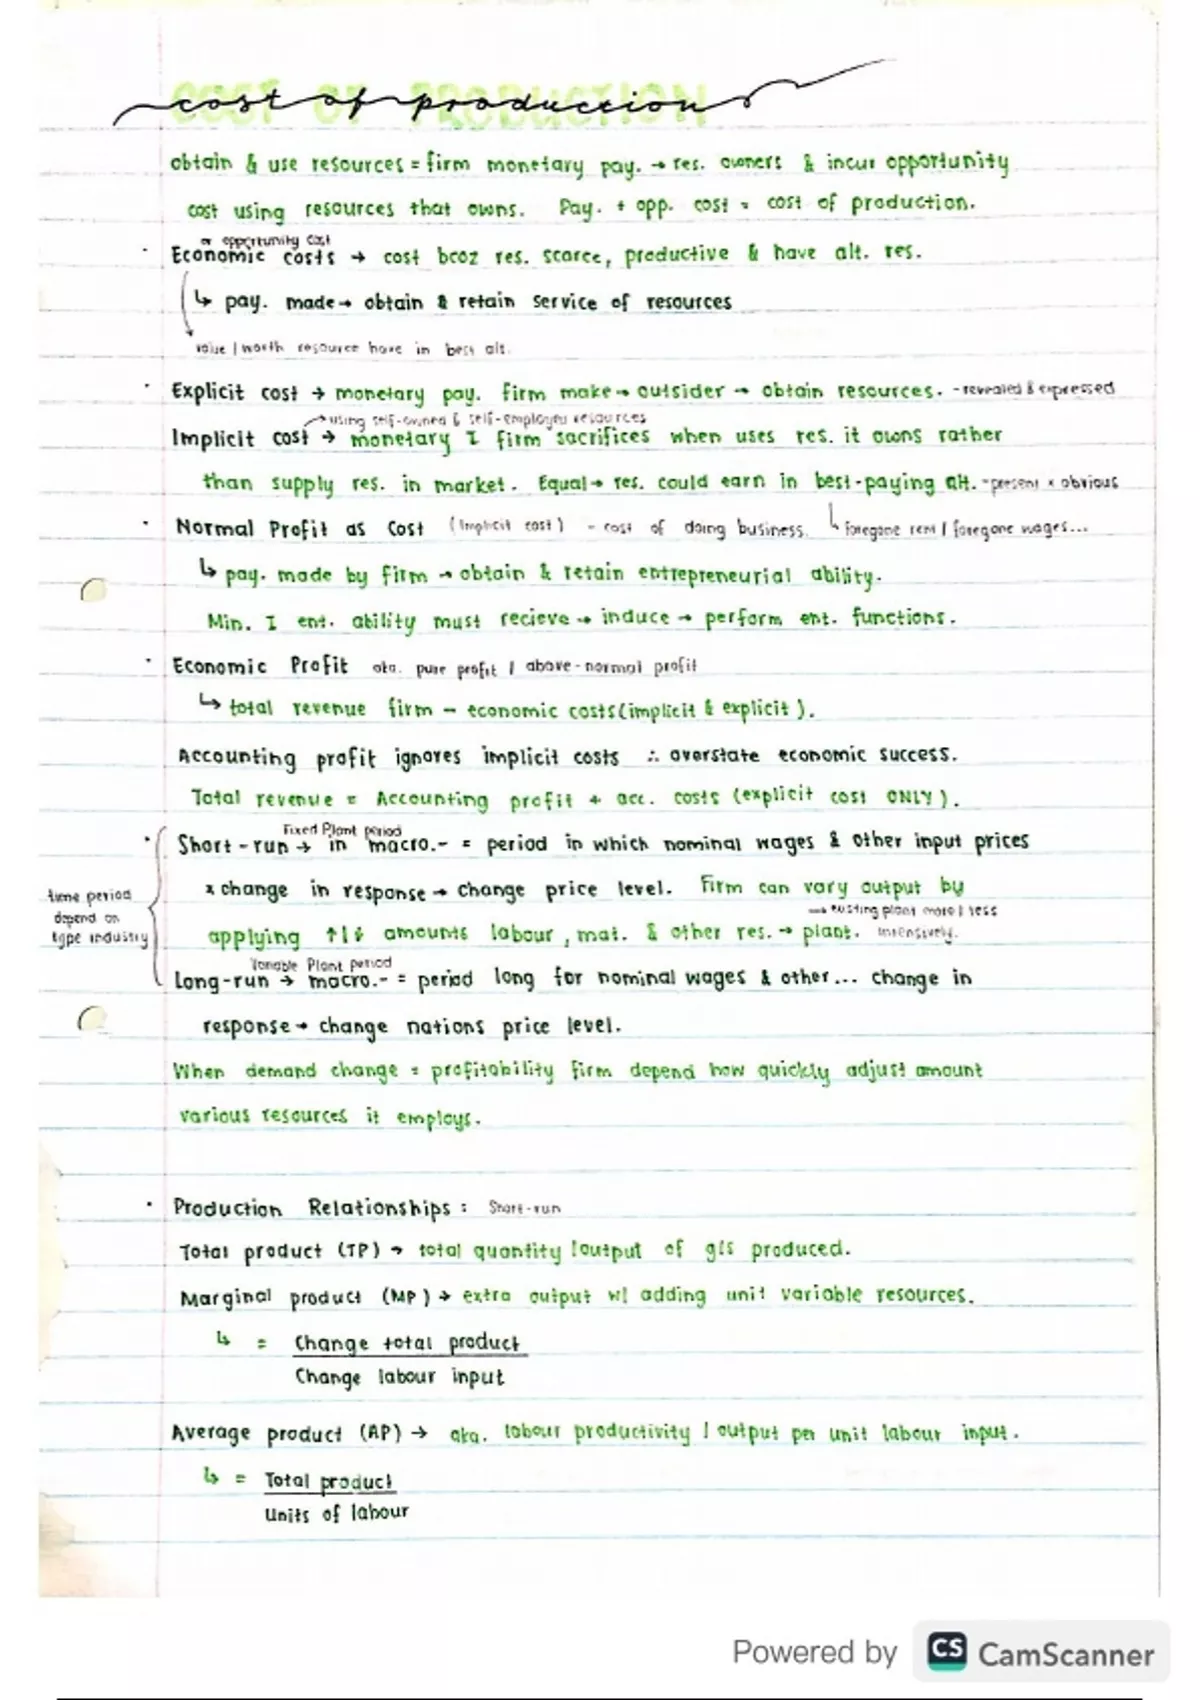 COST OF PRODUCTION
cost of production
obtain & use resources = firm monetary pay. → res. owners & incur opportunity
cost using resources that owns. Pay. + opp. cost = cost of production.
or opportunity cost
Economic costs → cost bcoz res. scarce, productive & have alt. res.
↳ pay. made → obtain & retain service of resources
value / worth resource have in best alt.
Explicit cost → monetary pay. firm make → outsider → obtain resources. - revealed & expressed
→ using self-owned & self-employed resources
Implicit cost → monetary I firm sacrifices when uses res. it owns rather
than supply res. in market. Equal → res. could earn in best-paying alt. - present x obvious
Normal Profit as Cost (implicit cost) - cost of doing business. ↳ foregone rent / foregone wages...
↳ pay. made by firm → obtain & retain entrepreneurial ability.
Min. I ent. ability must recieve → induce → perform ent. functions.
Economic Profit aka. pure profit / above-normal profit
↳ total revenue firm - economic costs (implicit & explicit).
Accounting profit ignores implicit costs ∴ overstate economic success.
Total revenue = Accounting profit + acc. costs (explicit cost ONLY).
Fixed Plant period
Short-run → in macro.- = period in which nominal wages & other input prices
x change in response → change price level. Firm can vary output by
→ existing plant more / less
applying ↑/↓ amounts labour, mat. & other res. → plant. intensively.
time period
depend on
type industry
Variable Plant period
Long-run → macro.- = period long for nominal wages & other... change in
response → change nations price level.
When demand change = profitability firm depend how quickly adjust amount
various resources it employs.
Production Relationships : Short-run
Total product (TP) → total quantity / output of g/s produced.
Marginal product (MP) → extra output w/ adding unit variable resources.
↳ = Change total product
Change labour input
Average product (AP) → aka. labour productivity / output per unit labour input.
↳ = Total product
Units of labour
Powered by CS CamScanner